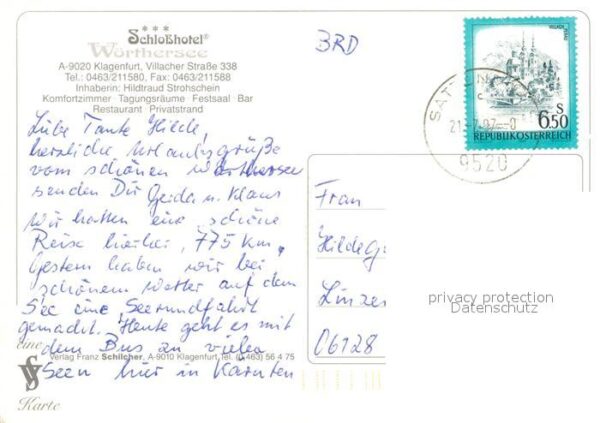 ★★★
Schloßhotel®
Wörthersee
A-9020 Klagenfurt, Villacher Straße 338
Tel.: 0463/211580, Fax: 0463/211588
Inhaberin: Hildtraud Strohschein
Komfortzimmer Tagungsräume Festsaal Bar
Restaurant Privatstrand
Liebe Tante Hilde,
herzliche Urlaubsgrüße
vom schönen Wörthersee
senden Dir Gerda u. Klaus
Wir hatten eine schöne
Reise hierher, 775 km.
Gestern haben wir bei
schönem Wetter auf dem
See eine Seerundfahrt
gemacht. Heute geht es mit
dem Bus zu vielen
Seen hier in Kärnten
eine
Verlag Franz Schilcher, A-9010 Klagenfurt, Tel. (0463) 56 4 75
Karte
BRD
S
6.50
REPUBLIK ÖSTERREICH
9520
Frau
Hilde G
Linzer
06128
privacy protection
Datenschutz